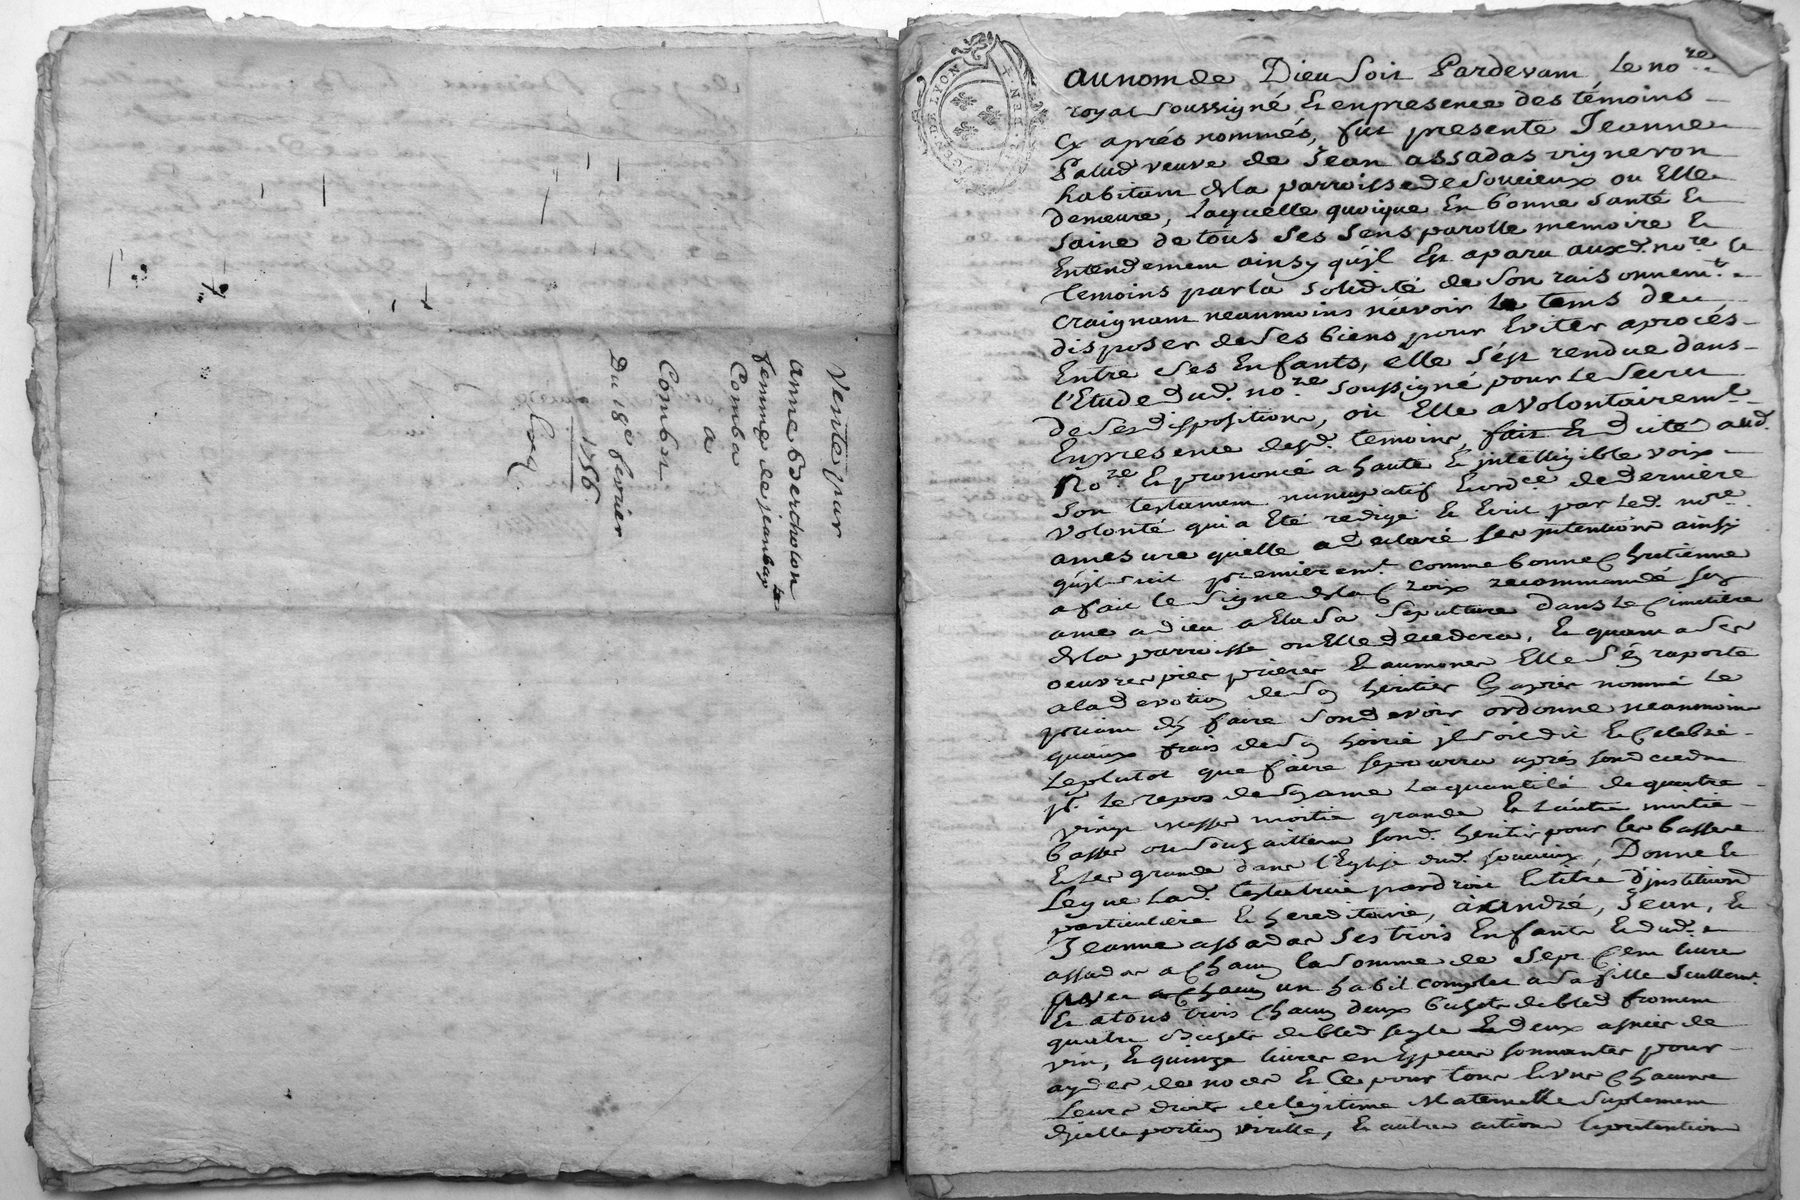 Vente par
anne Bertholon
femme de jean bap.te
Comba
a
Comber
Du 18e fevrier
1756
GEN. DE LYON
au nom de Dieu soit Pardevant Le no.re
royal soussigné Et en presence des témoins
Cy aprés nommés, fut presente Jeanne
Palud veuve de Jean assadas vigneron
habitant de la parroisse de Soucieux ou Elle
demeure, Laquelle quoique En bonne santé Et
saine de tous ses sens parolle memoire Et
Entendement ainsy qu'jl Est aparu auxd. no.re Et
temoins par la solidité de son raisonnem.t
craignant neanmoins n'avoir Le tems de
disposer de ses biens pour Eviter a procés
Entre ses Enfants, elle s'est rendue dans
l'Etude dud. no.re soussigné pour Le
de ses dispositions, ou Elle a volontairem.t
En presence desd. temoins, fait Et dicté aud.
No.re Et prononcé a haute Et jntelligible voix
Son testament nuncupatif Et ord.ce de derniére
volonté qui a Eté redigé Et Ecrit par Led. no.re
a mesure qu'elle a declaré ses jntentions ainsy
qu'jl suit premierem.t comme bonne Chretienne
a fait le signe de la Croix recommandé son
ame a dieu a Elu sa sepulture dans Le Cimetiére
de la parroisse ou Elle decedera, Et quant a ses
oeuvres pies priéres Et aumones Elle s'En raporte
a la devotion de son heritier Cy aprés nommé Le
priant d'En faire son devoir ordonne neanmoins
qu'aux frais de son hoirie jl soit dit Et Celebré
Le plutot que faire se pourra aprés son deceds
p.r Le repos de son ame La quantité de quatre
vingt messes moitié grande Et L'autre moitié
basses ou souhaittera sond. heritier pour les basses
Et Les grandes dans l'Eglise dud. soucieux, Donne Et
Legue Lad. testatrice par droit Et titre d'jnstitution
particuliére Et hereditaire, à andré, Jean, Et
Jeanne assadas ses trois Enfants Et dud.
assadas a Chacun la somme de sept Cent livres
avec a Chacun un habit complet a sa fille seullem.t
Et a tous trois Chacun deux bichets de bled froment
quatre bichets de bled segle Et deux asnées de
vin, Et quinze livres en Espéces sonnantes pour
ayder de noces Et Ce pour tous Et uns Chacuns
Leurs droits de legitime Maternelle suplement
d'jcelle portion virille, Et autres actions Et pretentions